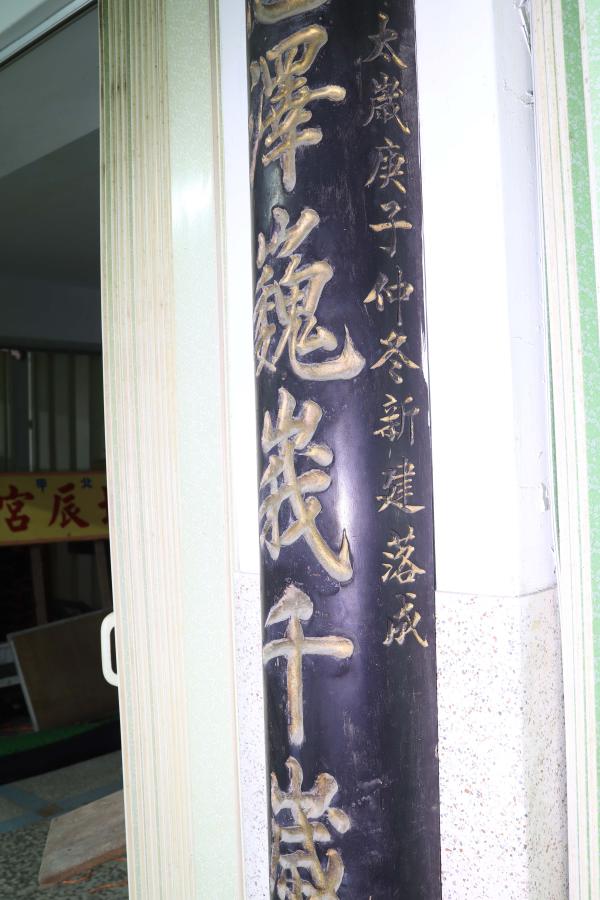 太歲庚子仲冬新建落成
澤巍峩千歲
北甲
辰宮